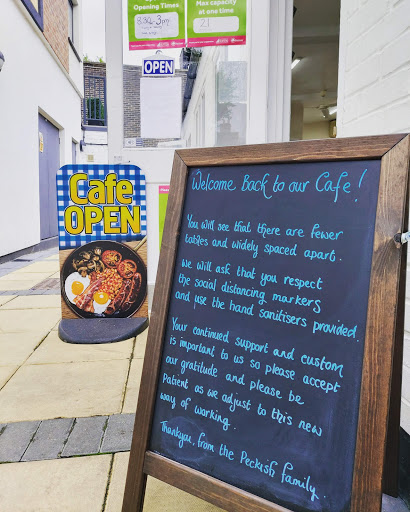 Opening Times
8.30-3pm
Max capacity
at one time
21
OPEN
Cafe
OPEN
Welcome Back to our Cafe!
You will see that there are fewer
tables and widely spaced apart.
We will ask that you respect
the social distancing markers
and use the hand sanitisers provided.
Your continued support and custom
is important to us so please accept
our gratitude and please be
Patient as we adjust to this new
way of working.
Thankyou, from the Peckish family.